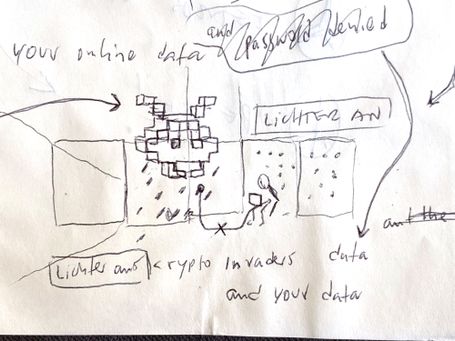 and password denied
your online data
LICHTER AN
and the
Lichter aus crypto invaders data
and your data